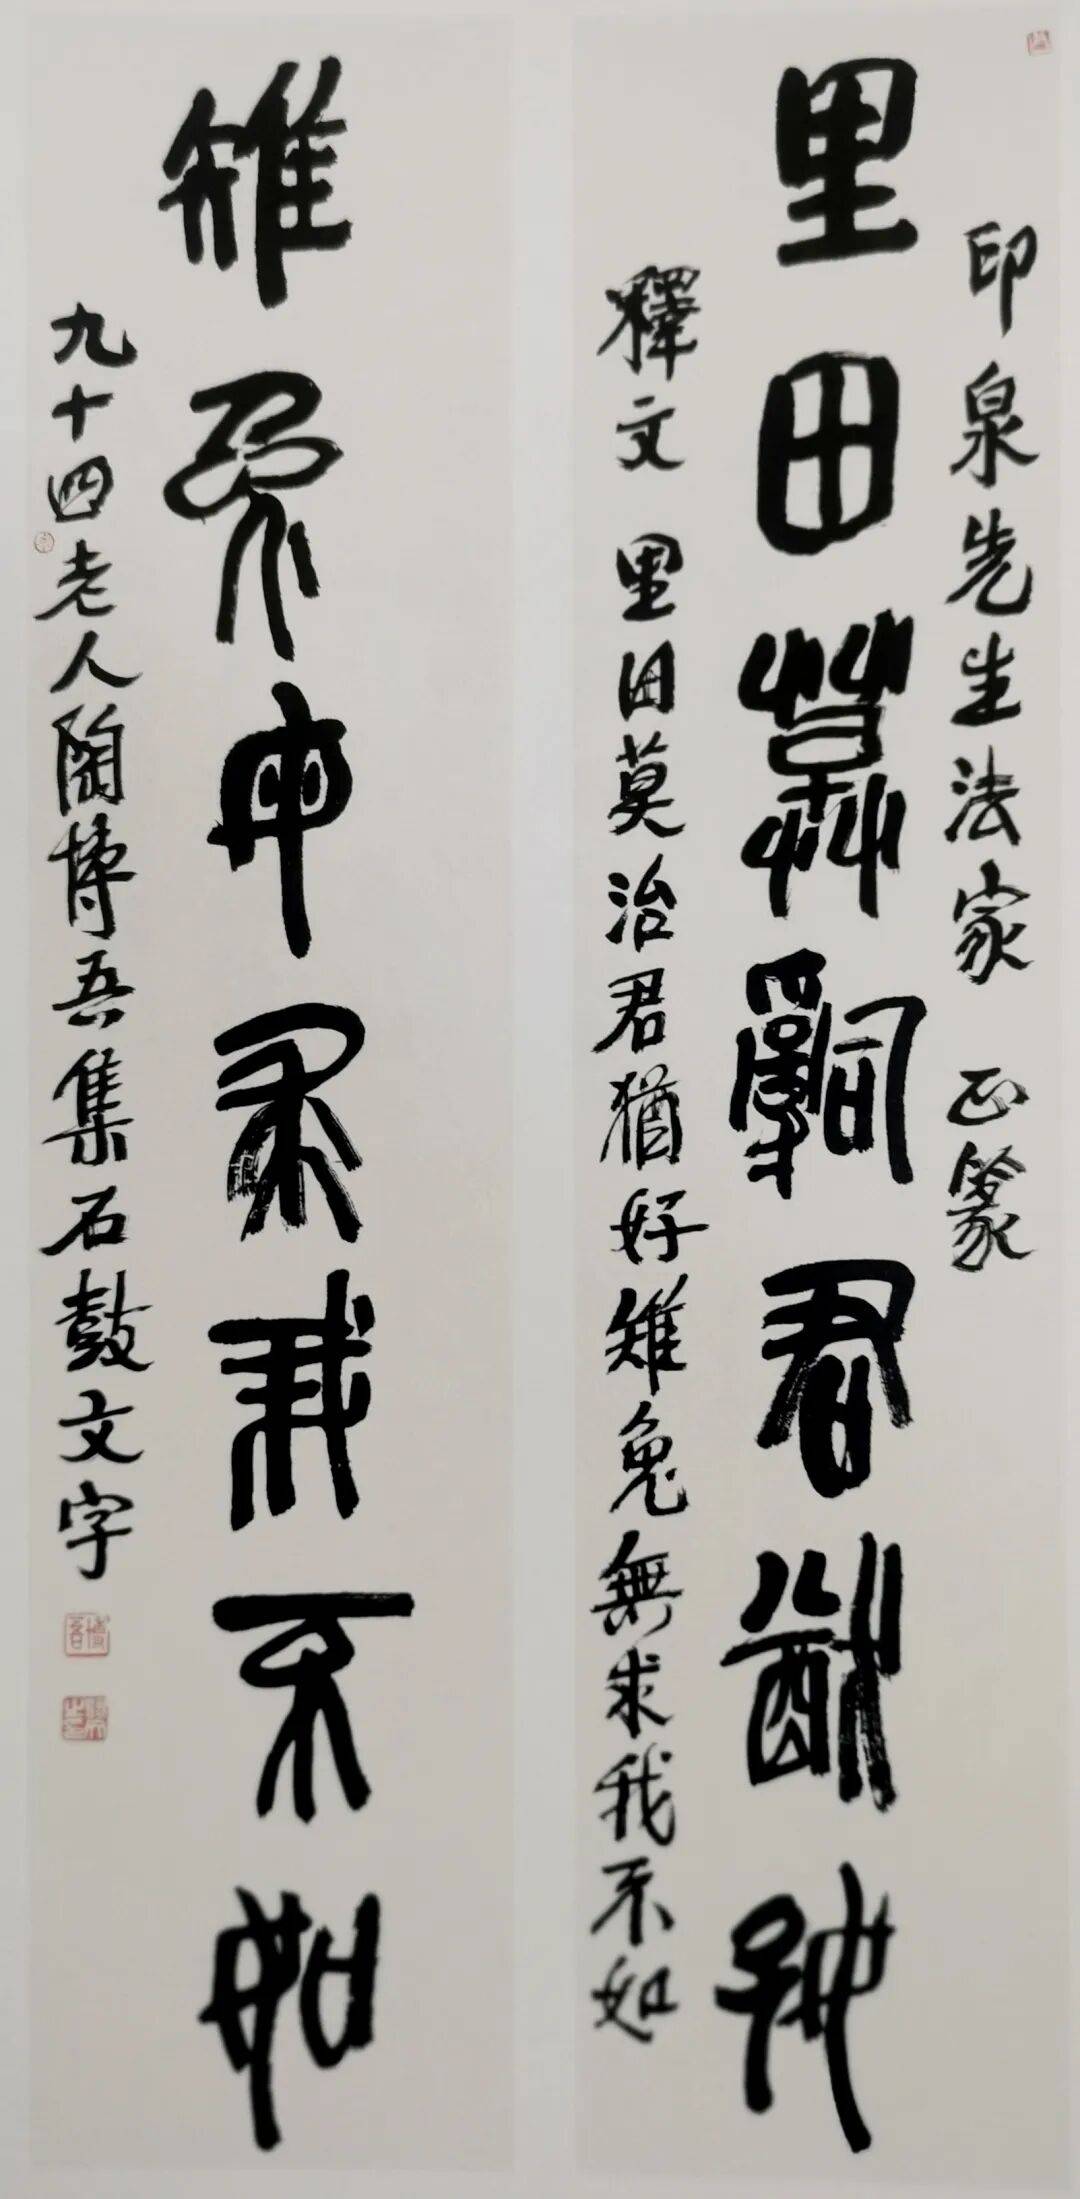 印泉先生法家 正篆
里田莫治君猶好
釋文 里田莫治君猶好雉兔無求我不如
雉兔毋求我不如
九十四老人陶博吾集石鼓文字
博吾